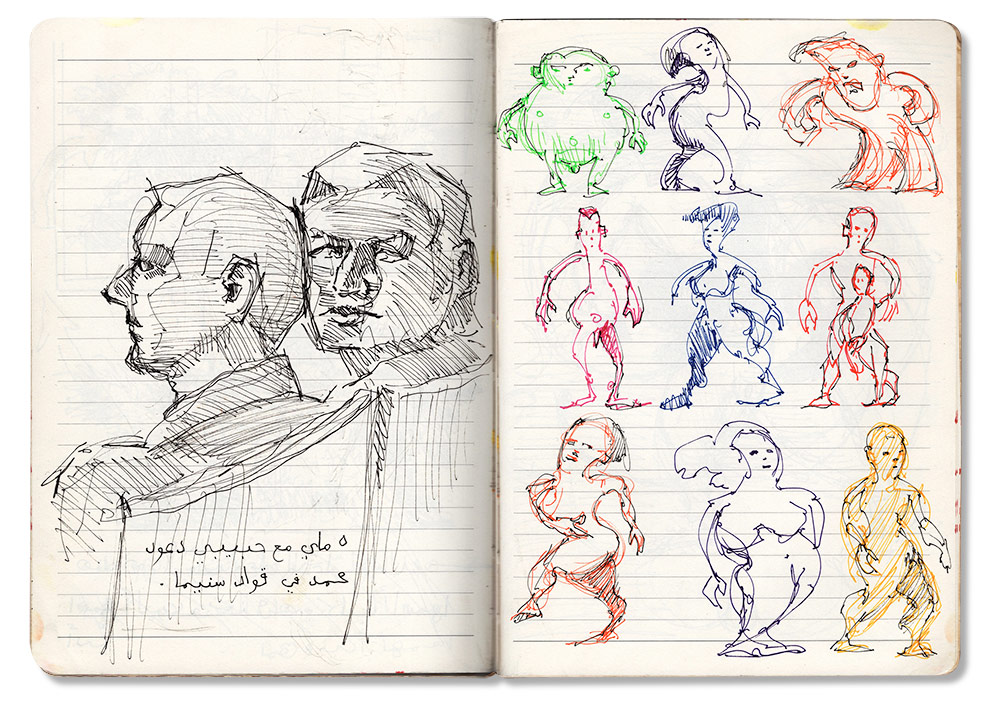 ٥ ماي مع حبيبي دعود
محمد في قواد سنيما .